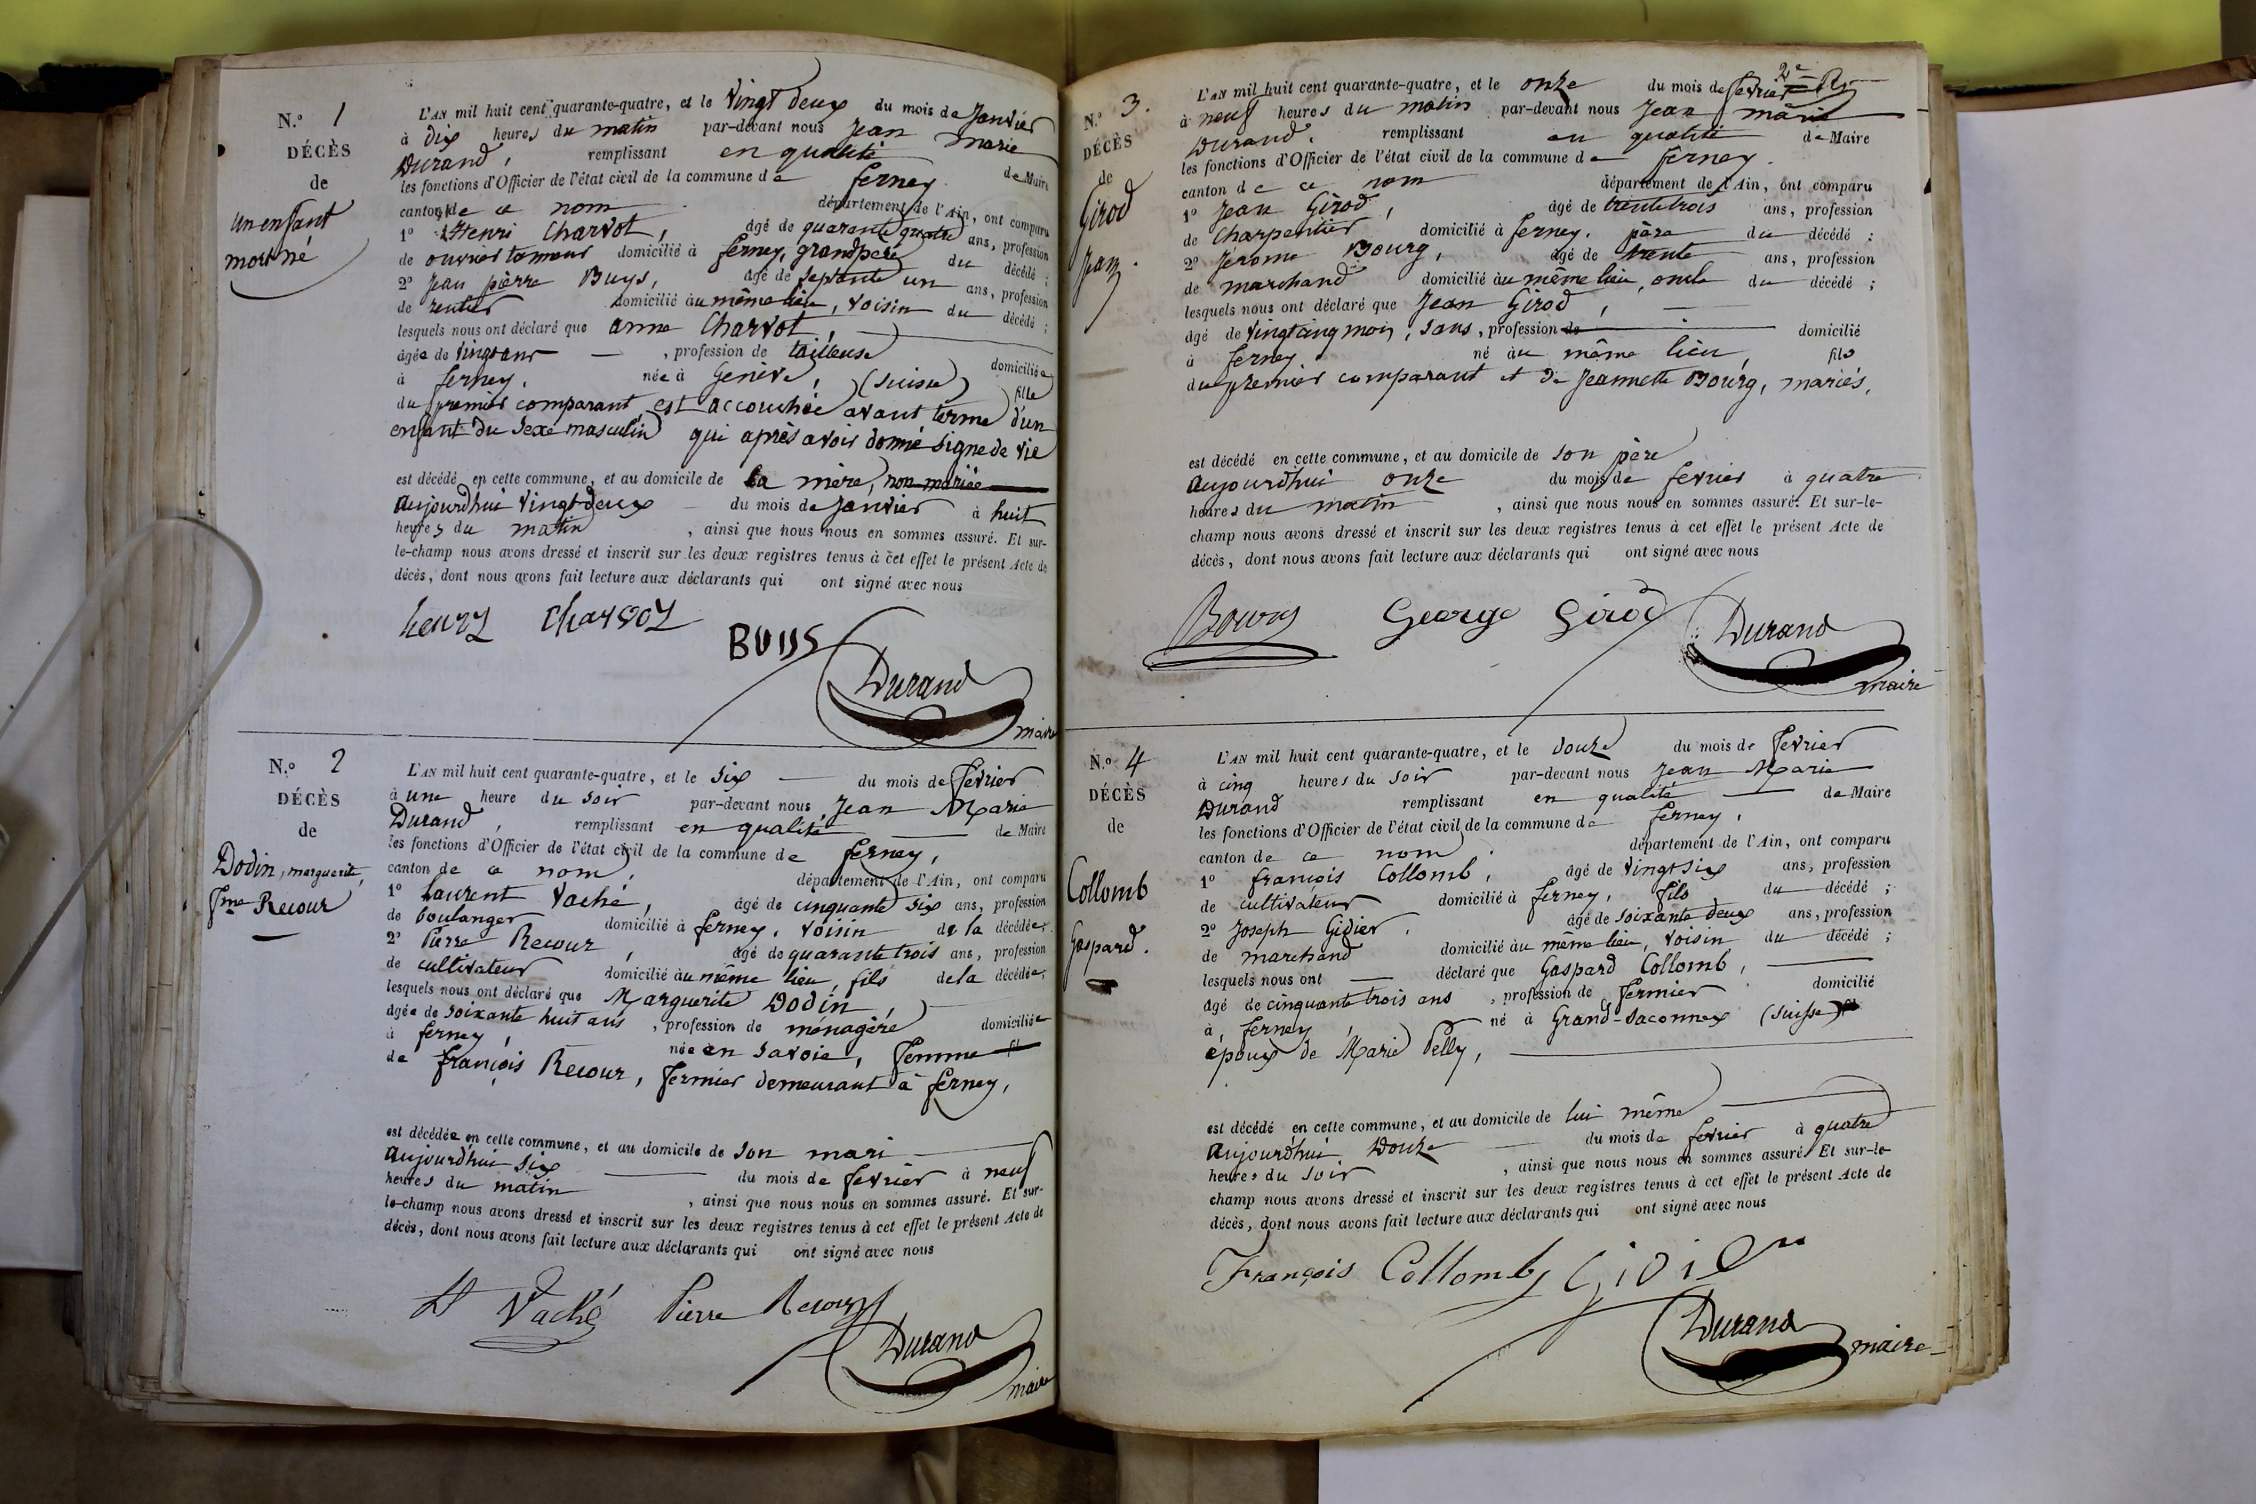 N.o 1
DÉCÈS
de
un enfant
mort né
L'AN mil huit cent quarante-quatre, et le vingt deux du mois de Janvier
à dix heures du matin par-devant nous Jean marie
Durand, remplissant en qualité de Maire
les fonctions d'Officier de l'état civil de la commune de ferney.
canton de ce nom département de l'Ain, ont comparu
1o Henri Charvot, âgé de quarante quatre ans, profession
de ouvrier tanneur domicilié à ferney, grandpère du décédé ;
2o Jean pièrre Buys, âgé de septante un ans, profession
de rentier domicilié au même lieu, voisin du décédé ;
lesquels nous ont déclaré que anne Charvot,
âgée de vingt ans, profession de tailleuse domiciliée
à ferney, née à Genève, (suisse) fille
du premier comparant, est accouchée avant terme d'un
enfant du sexe masculin qui après avoir donné signe de vie
est décédé en cette commune, et au domicile de sa mère, non mariée
aujourdhui vingt-deux du mois de Janvier à huit
heures du matin, ainsi que nous nous en sommes assuré. Et sur-
le-champ nous avons dressé et inscrit sur les deux registres tenus à cet effet le présent Acte de
décès, dont nous avons fait lecture aux déclarants qui ont signé avec nous
henry Charvot
BUYS
Durand
maire
N.o 2
DÉCÈS
de
Dodin, marguerite,
fme Recour
L'AN mil huit cent quarante-quatre, et le six du mois de fevrier
à une heure du soir par-devant nous Jean Marie
Durand, remplissant en qualité de Maire
les fonctions d'Officier de l'état civil de la commune de ferney,
canton de ce nom, département de l'Ain, ont comparu
1o Laurent Vaché, âgé de cinquante six ans, profession
de boulanger domicilié à ferney, voisin de la décédée ;
2o Pierre Recour, âgé de quarante trois ans, profession
de cultivateur domicilié au même lieu, fils de la décédée ;
lesquels nous ont déclaré que Marguerite Dodin,
âgée de soixante huit ans, profession de ménagère domiciliée
à ferney, née en savoie, femme fil
de françois Recour, fermier demeurant à ferney,
est décédée en cette commune, et au domicile de son mari
aujourdhui six du mois de fevrier à neuf
heures du matin, ainsi que nous nous en sommes assuré. Et sur-
le-champ nous avons dressé et inscrit sur les deux registres tenus à cet effet le présent Acte de
décès, dont nous avons fait lecture aux déclarants qui ont signé avec nous
Lt Vaché Pierre Recour
Durand
maire
2e
N.o 3.
DÉCÈS
de
Girod
Jean.
L'AN mil huit cent quarante-quatre, et le onze du mois de fevrier
à neuf heures du matin par-devant nous Jean marie
Durand. remplissant en qualité de Maire
les fonctions d'Officier de l'état civil de la commune de ferney.
canton de ce nom département de l'Ain, ont comparu
1o Jean Girod, âgé de trente trois ans, profession
de Charpentier domicilié à ferney. père du décédé ;
2o Jérome Bourg, âgé de trente ans, profession
de marchand domicilié au même lieu, oncle du décédé ;
lesquels nous ont déclaré que Jean Girod,
âgé de vingt cinq mois, sans, profession de domicilié
à ferney né au même lieu, fils
du premier comparant et de Jeannette Bourg, mariés.
est décédé en cette commune, et au domicile de son père
aujourdhui onze du mois de fevrier à quatre
heures du matin, ainsi que nous nous en sommes assuré. Et sur-le-
champ nous avons dressé et inscrit sur les deux registres tenus à cet effet le présent Acte de
décès, dont nous avons fait lecture aux déclarants qui ont signé avec nous
Bourg George Girod Durand
maire
N.o 4
DÉCÈS
de
Collomb
Gaspard.
L'AN mil huit cent quarante-quatre, et le douze du mois de fevrier
à cinq heures du soir par-devant nous Jean Marie
Durand remplissant en qualité de Maire
les fonctions d'Officier de l'état civil de la commune de ferney,
canton de ce nom. département de l'Ain, ont comparu
1o françois Collomb, âgé de vingt six ans, profession
de cultivateur domicilié à ferney, fils du décédé ;
2o Joseph Gidier, âgé de soixante deux ans, profession
de marchand domicilié au même lieu, voisin du décédé ;
lesquels nous ont déclaré que Gaspard Collomb,
âgé de cinquante trois ans, profession de fermier domicilié
à ferney, né à Grand-Saconnex (suisse)
époux de Marie Pelly,
est décédé en cette commune, et au domicile de lui même
aujourdhui douze du mois de fevrier à quatre
heures du soir, ainsi que nous nous en sommes assuré. Et sur-le-
champ nous avons dressé et inscrit sur les deux registres tenus à cet effet le présent Acte de
décès, dont nous avons fait lecture aux déclarants qui ont signé avec nous
François Collomb Gidier
Durand
maire